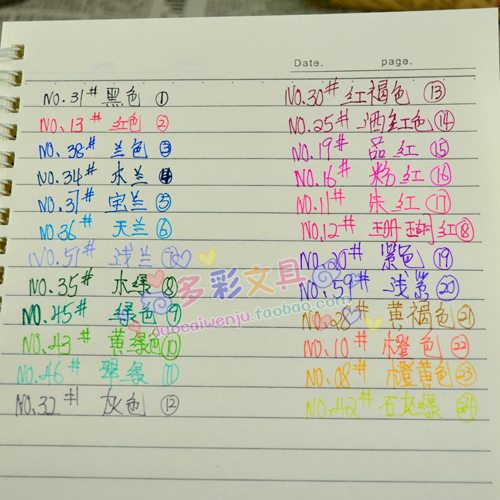 Date. page.
NO.31# 黑色 ①
NO.13# 红色 ②
NO.38# 兰色 ③
NO.34# 水兰 ④
NO.37# 宝兰 ⑤
NO.36# 天兰 ⑥
NO.57# 浅兰 ⑦
NO.35# 木绿 ⑧
NO.45# 绿色 ⑨
NO.43# 黄绿色 ⑩
NO.46# 翠绿 ⑪
NO.32# 灰色 ⑫
NO.30# 红褐色 ⑬
NO.25# 洒红色 ⑭
NO.19# 品红 ⑮
NO.16# 粉红 ⑯
NO.11# 朱红 ⑰
NO.12# 珊瑚红 ⑱
紫色 ⑲
NO.59# 浅紫 ⑳
NO.28# 黄褐色 ㉑
NO.10# 橙色 ㉒
NO.08# 橙黄色 ㉓
NO.42# 石灰绿 ㉔
多彩文具
duocaiwenju.taobao.com